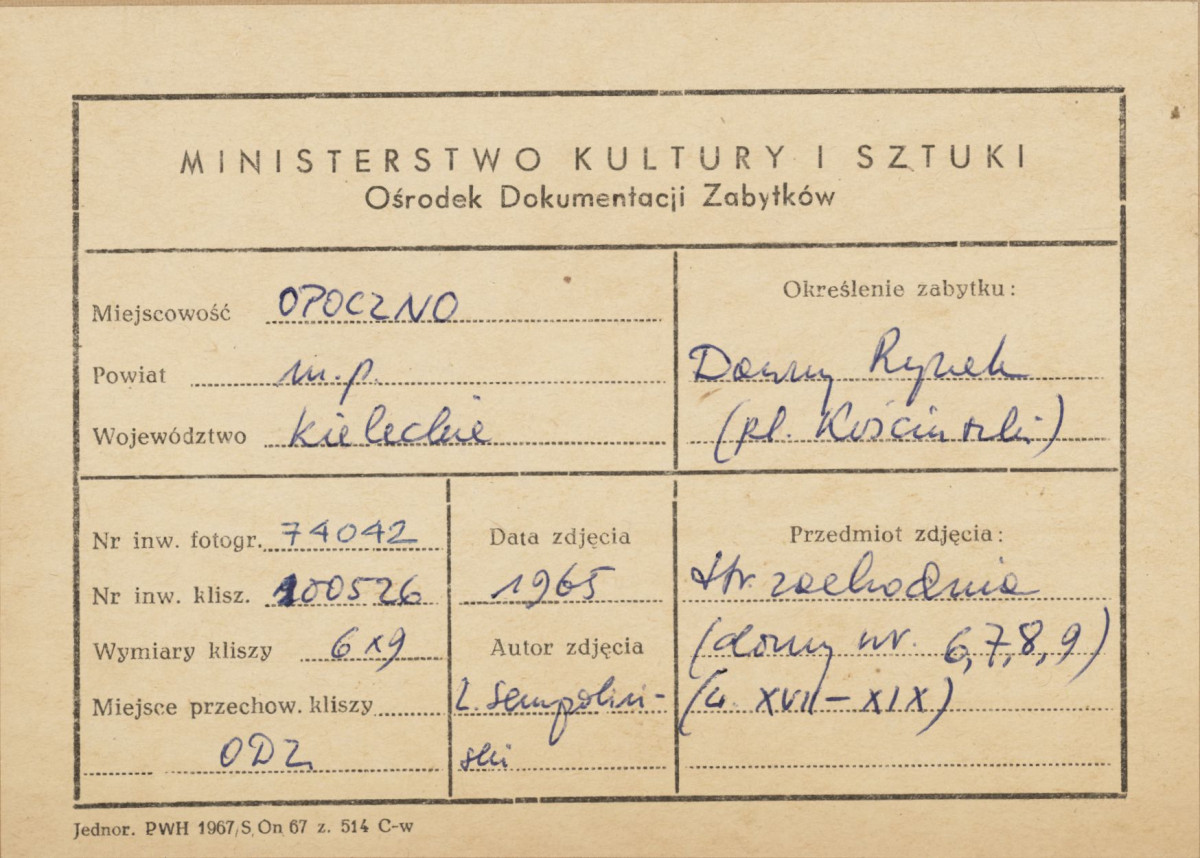 MINISTERSTWO KULTURY I SZTUKI
Ośrodek Dokumentacji Zabytków
Miejscowość OPOCZNO
Powiat m.p.
Województwo kieleckie
Określenie zabytku:
Dawny Rynek
(pl. Kościuszki)
Nr inw. fotogr. 74042
Nr inw. klisz. 100526
Wymiary kliszy 6x9
Miejsce przechow. kliszy
ODZ
Data zdjęcia
1965
Autor zdjęcia
Ł. Sempoliń-
ski
Przedmiot zdjęcia:
Str. zachodnia
(domy nr. 6,7,8,9)
(w. XVII - XIX)
Jednor. PWH 1967/S On 67 z. 514 C-w